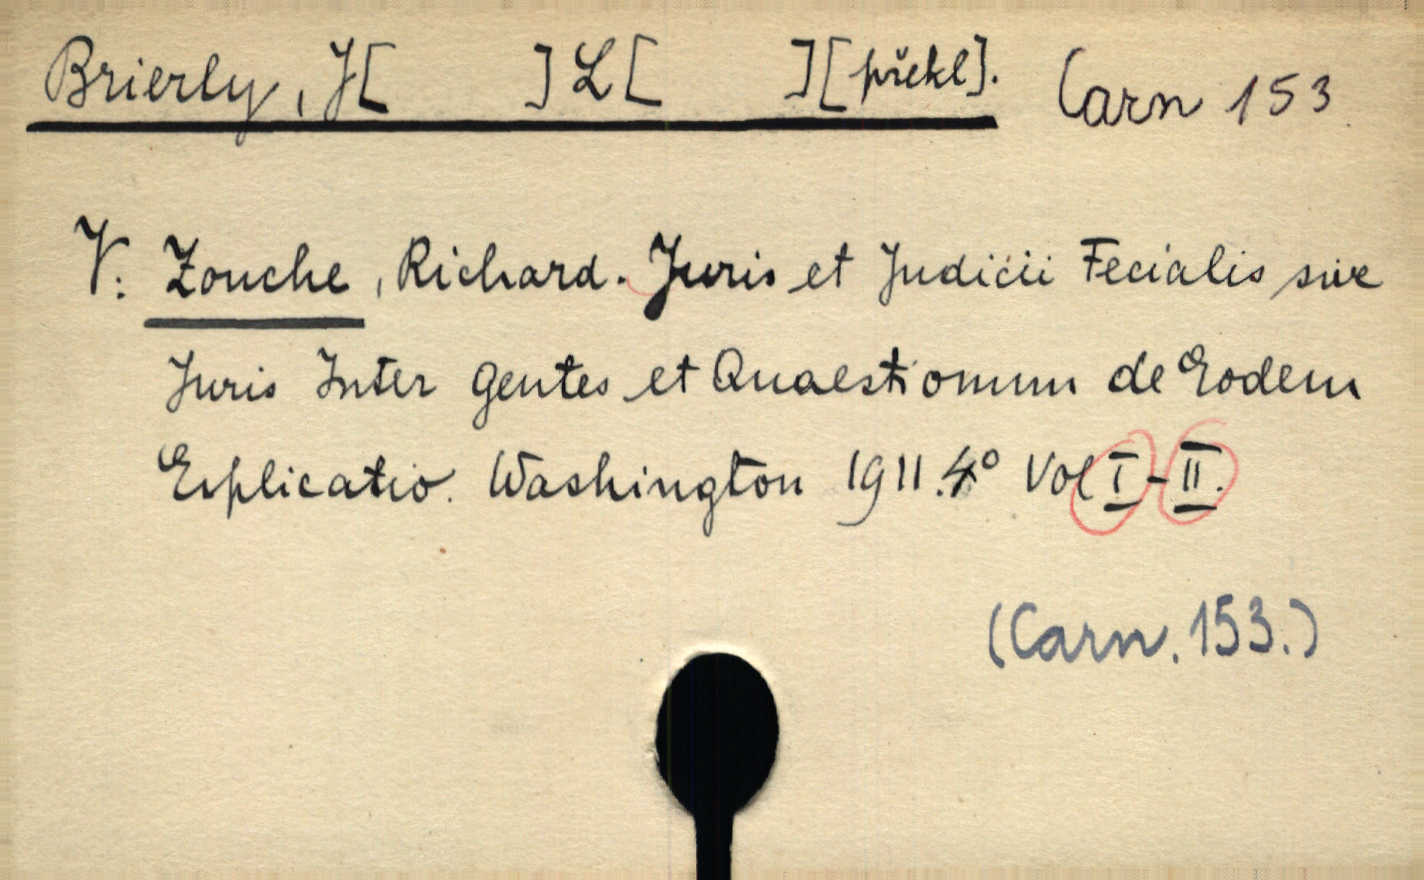 Brierly, J[ ] L[ ][překl]. Carn 153
V: Zouche, Richard. Juris et Judicii Fecialis sive
Juris Inter gentes et Quaestionum de Eodem
Explicatio. Washington 1911. 4° Vol I-II.
(Carn. 153.)